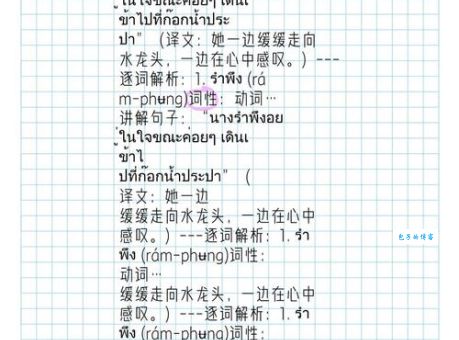 ู่ในใจขณะค่อยๆ เดินเ
ข้าไปที่ก๊อกน้ำประ
ปา” （译文：她一边缓缓走向
水龙头，一边在心中感叹。）---
逐词解析：1. รำพึง (rá
m-phʉng)词性：动词…
讲解句子：“นางรำพึงอย
ู่ในใจขณะค่อยๆ เดินเ
ข้าไ
ปที่ก๊อกน้ำประปา” （
译文：她一边
缓缓走向水龙头，一边在心中
感叹。）---逐词解析：1. รำ
พึง (rám-phʉng)词性：
动词…
缓缓走向水龙头，一边在心中
感叹。）---逐词解析：1. รำ
พึง (rám-phʉng)词性：
包子的博客